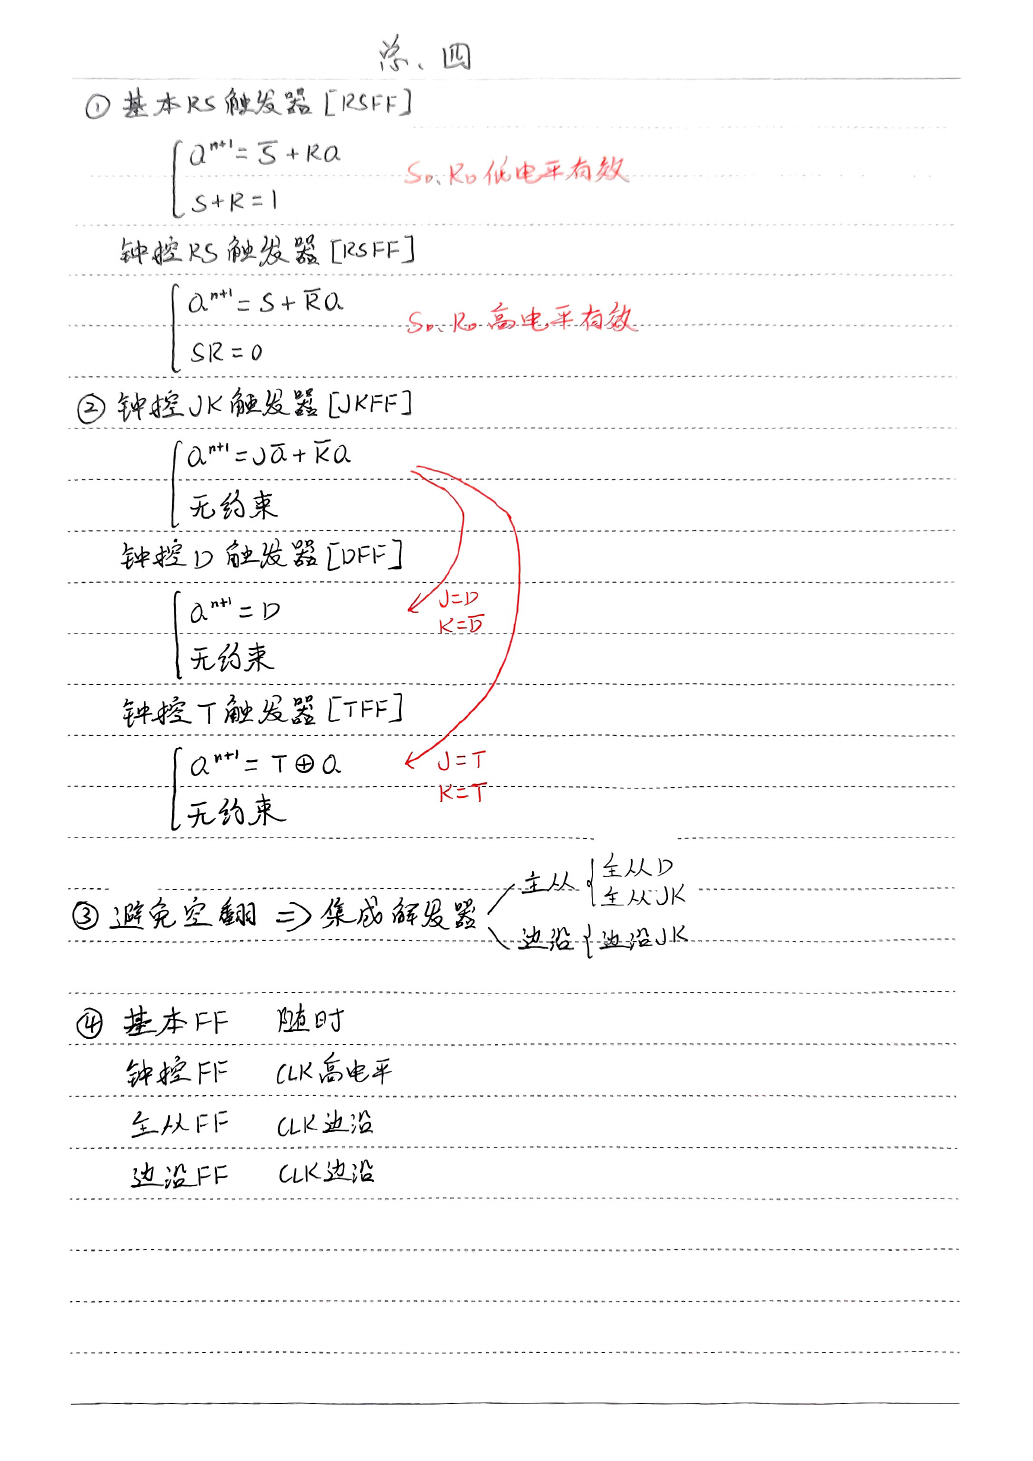 总、四
① 基本RS触发器[RSFF]
Qⁿ⁺¹ = S̅ + RQ
S+R=1
S_D、R_D 低电平有效
钟控RS触发器[RSFF]
Qⁿ⁺¹ = S + R̅Q
SR=0
S_D、R_D 高电平有效
② 钟控JK触发器[JKFF]
Qⁿ⁺¹ = JQ̅ + K̅Q
无约束
钟控D触发器[DFF]
Qⁿ⁺¹ = D
无约束
J=D
K=D̅
钟控T触发器[TFF]
Qⁿ⁺¹ = T⊕Q
无约束
J=T
K=T
③ 避免空翻 ⇒ 集成触发器
主从 { 主从D
主从JK
边沿 { 边沿JK
④ 基本FF 随时
钟控FF CLK高电平
主从FF CLK边沿
边沿FF CLK边沿